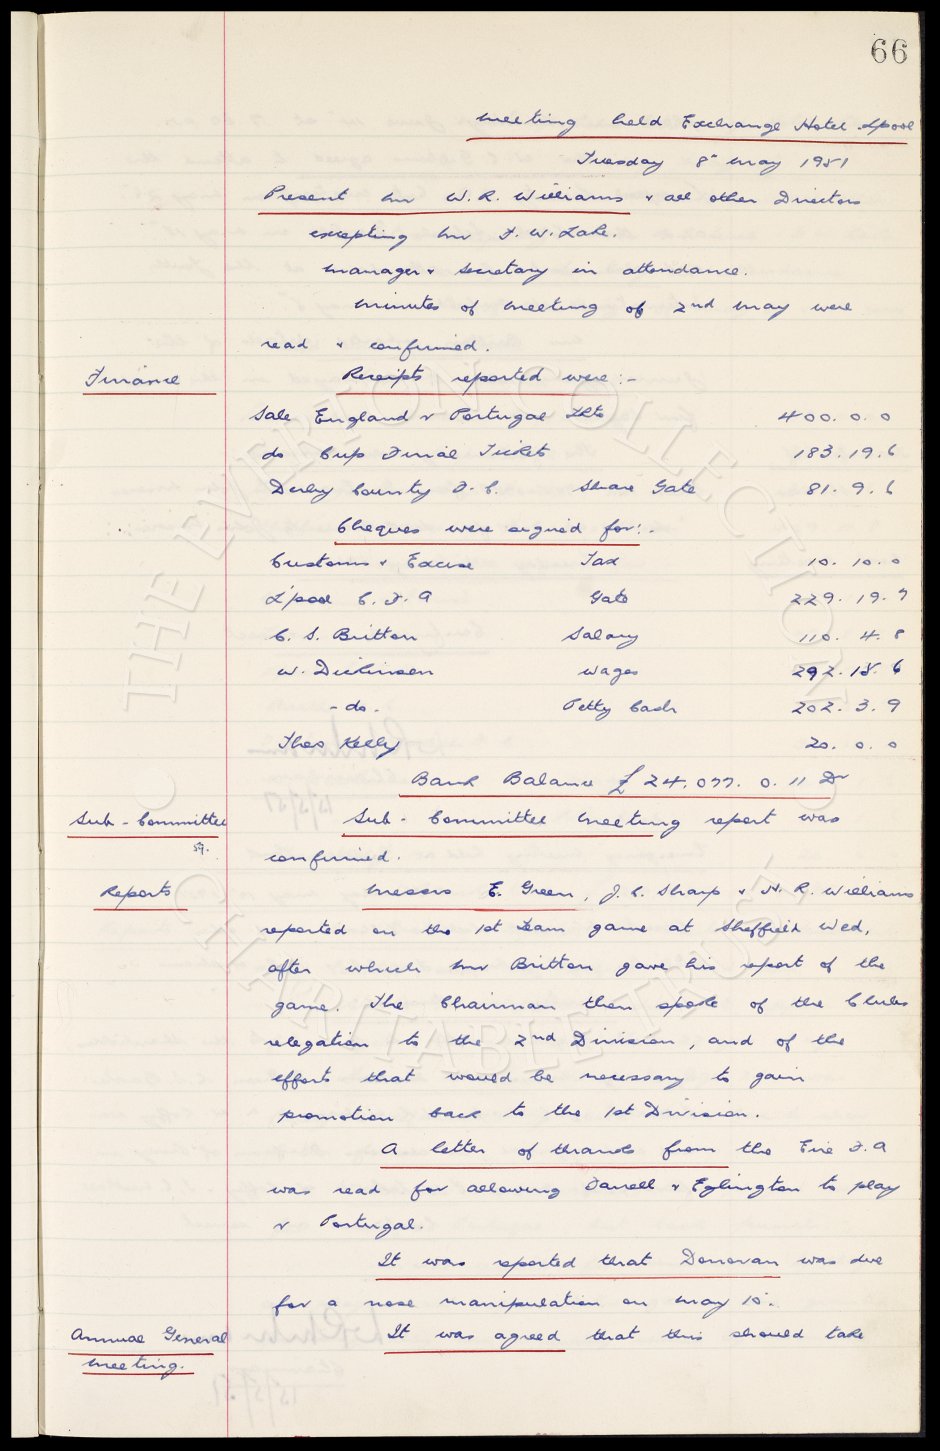 66
Meeting held Exchange Hotel L'pool
Tuesday 8th May 1951
Present Mr W. R. Williams & all other Directors
excepting Mr F. W. Lake.
Manager & Secretary in attendance.
Minutes of Meeting of 2nd May were
read & confirmed.
Finance Receipts reported were:-
Sale England v Portugal Tkts 400. 0. 0
do Cup Final Tickets 183. 19. 6
Derby County F. C. Share Gate 81. 9. 6
Cheques were signed for:-
Customs & Excise Tax 10. 10. 0
L'pool C. F. A Gate 229. 19. 7
C. S. Britton Salary 110. 4. 8
W. Dickinson Wages 292. 18. 6
- do - Petty Cash 202. 3. 9
Theo Kelly 20. 0. 0
Bank Balance £24,077. 0. 11 Dr
Sub-Committee Sub-Committee Meeting report was
59.
confirmed.
Reports Messrs E. Green, J. C. Sharp & W. R. Williams
reported on the 1st Team game at Sheffield Wed,
after which Mr Britton gave his report of the
game. The Chairman then spoke of the Clubs
relegation to the 2nd Division, and of the
efforts that would be necessary to gain
promotion back to the 1st Division.
A letter of thanks from the Eire F. A
was read for allowing Farrell & Eglington to play
v Portugal.
It was reported that Donovan was due
for a nose manipulation on May 10th.
Annual General It was agreed that this should take
Meeting.
© THE EVERTON COLLECTION
CHARITABLE TRUST